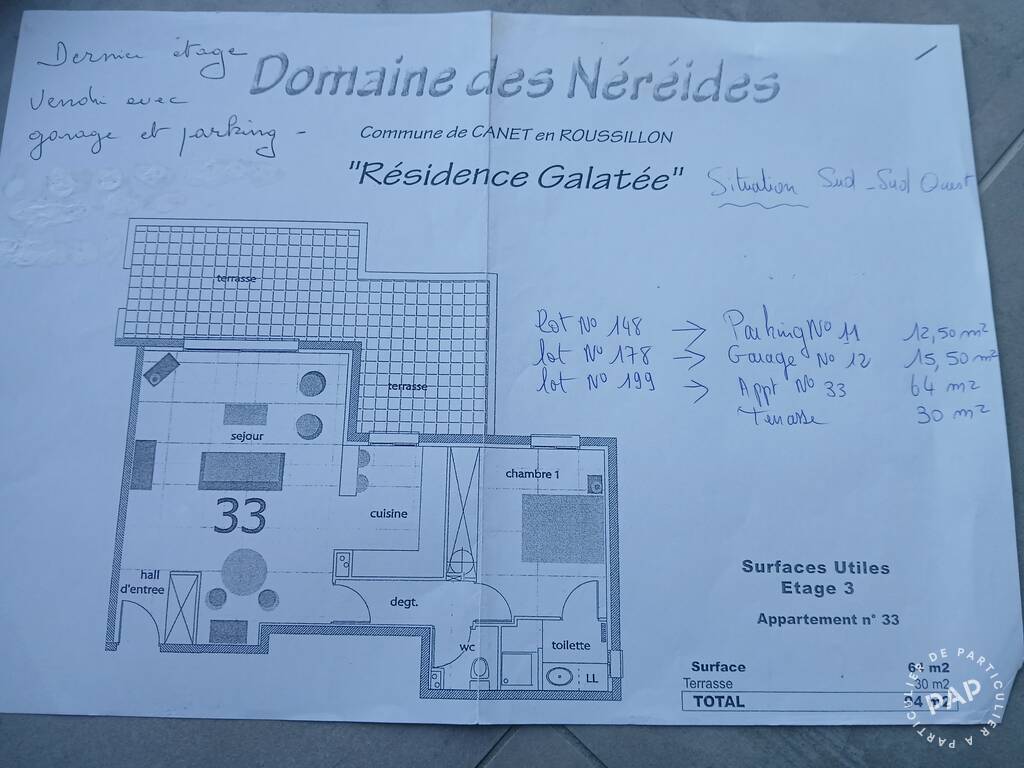 Dernier étage
Vendu avec
garage et parking -
Domaine des Néréides
Commune de CANET en ROUSSILLON
"Résidence Galatée"
Situation Sud - Sud Ouest
lot N° 148 → Parking N° 11 12,50 m²
lot N° 178 → Garage N° 12 15,50 m²
lot N° 199 → Appt N° 33 64 m²
Terrasse 30 m²
terrasse
terrasse
sejour
chambre 1
33
cuisine
hall
d'entree
degt.
wc
toilette
LL
Surfaces Utiles
Etage 3
Appartement n° 33
Surface 64 m2
Terrasse 30 m2
TOTAL 94 m2
DE PARTICULIER A PARTICULIER
PAP